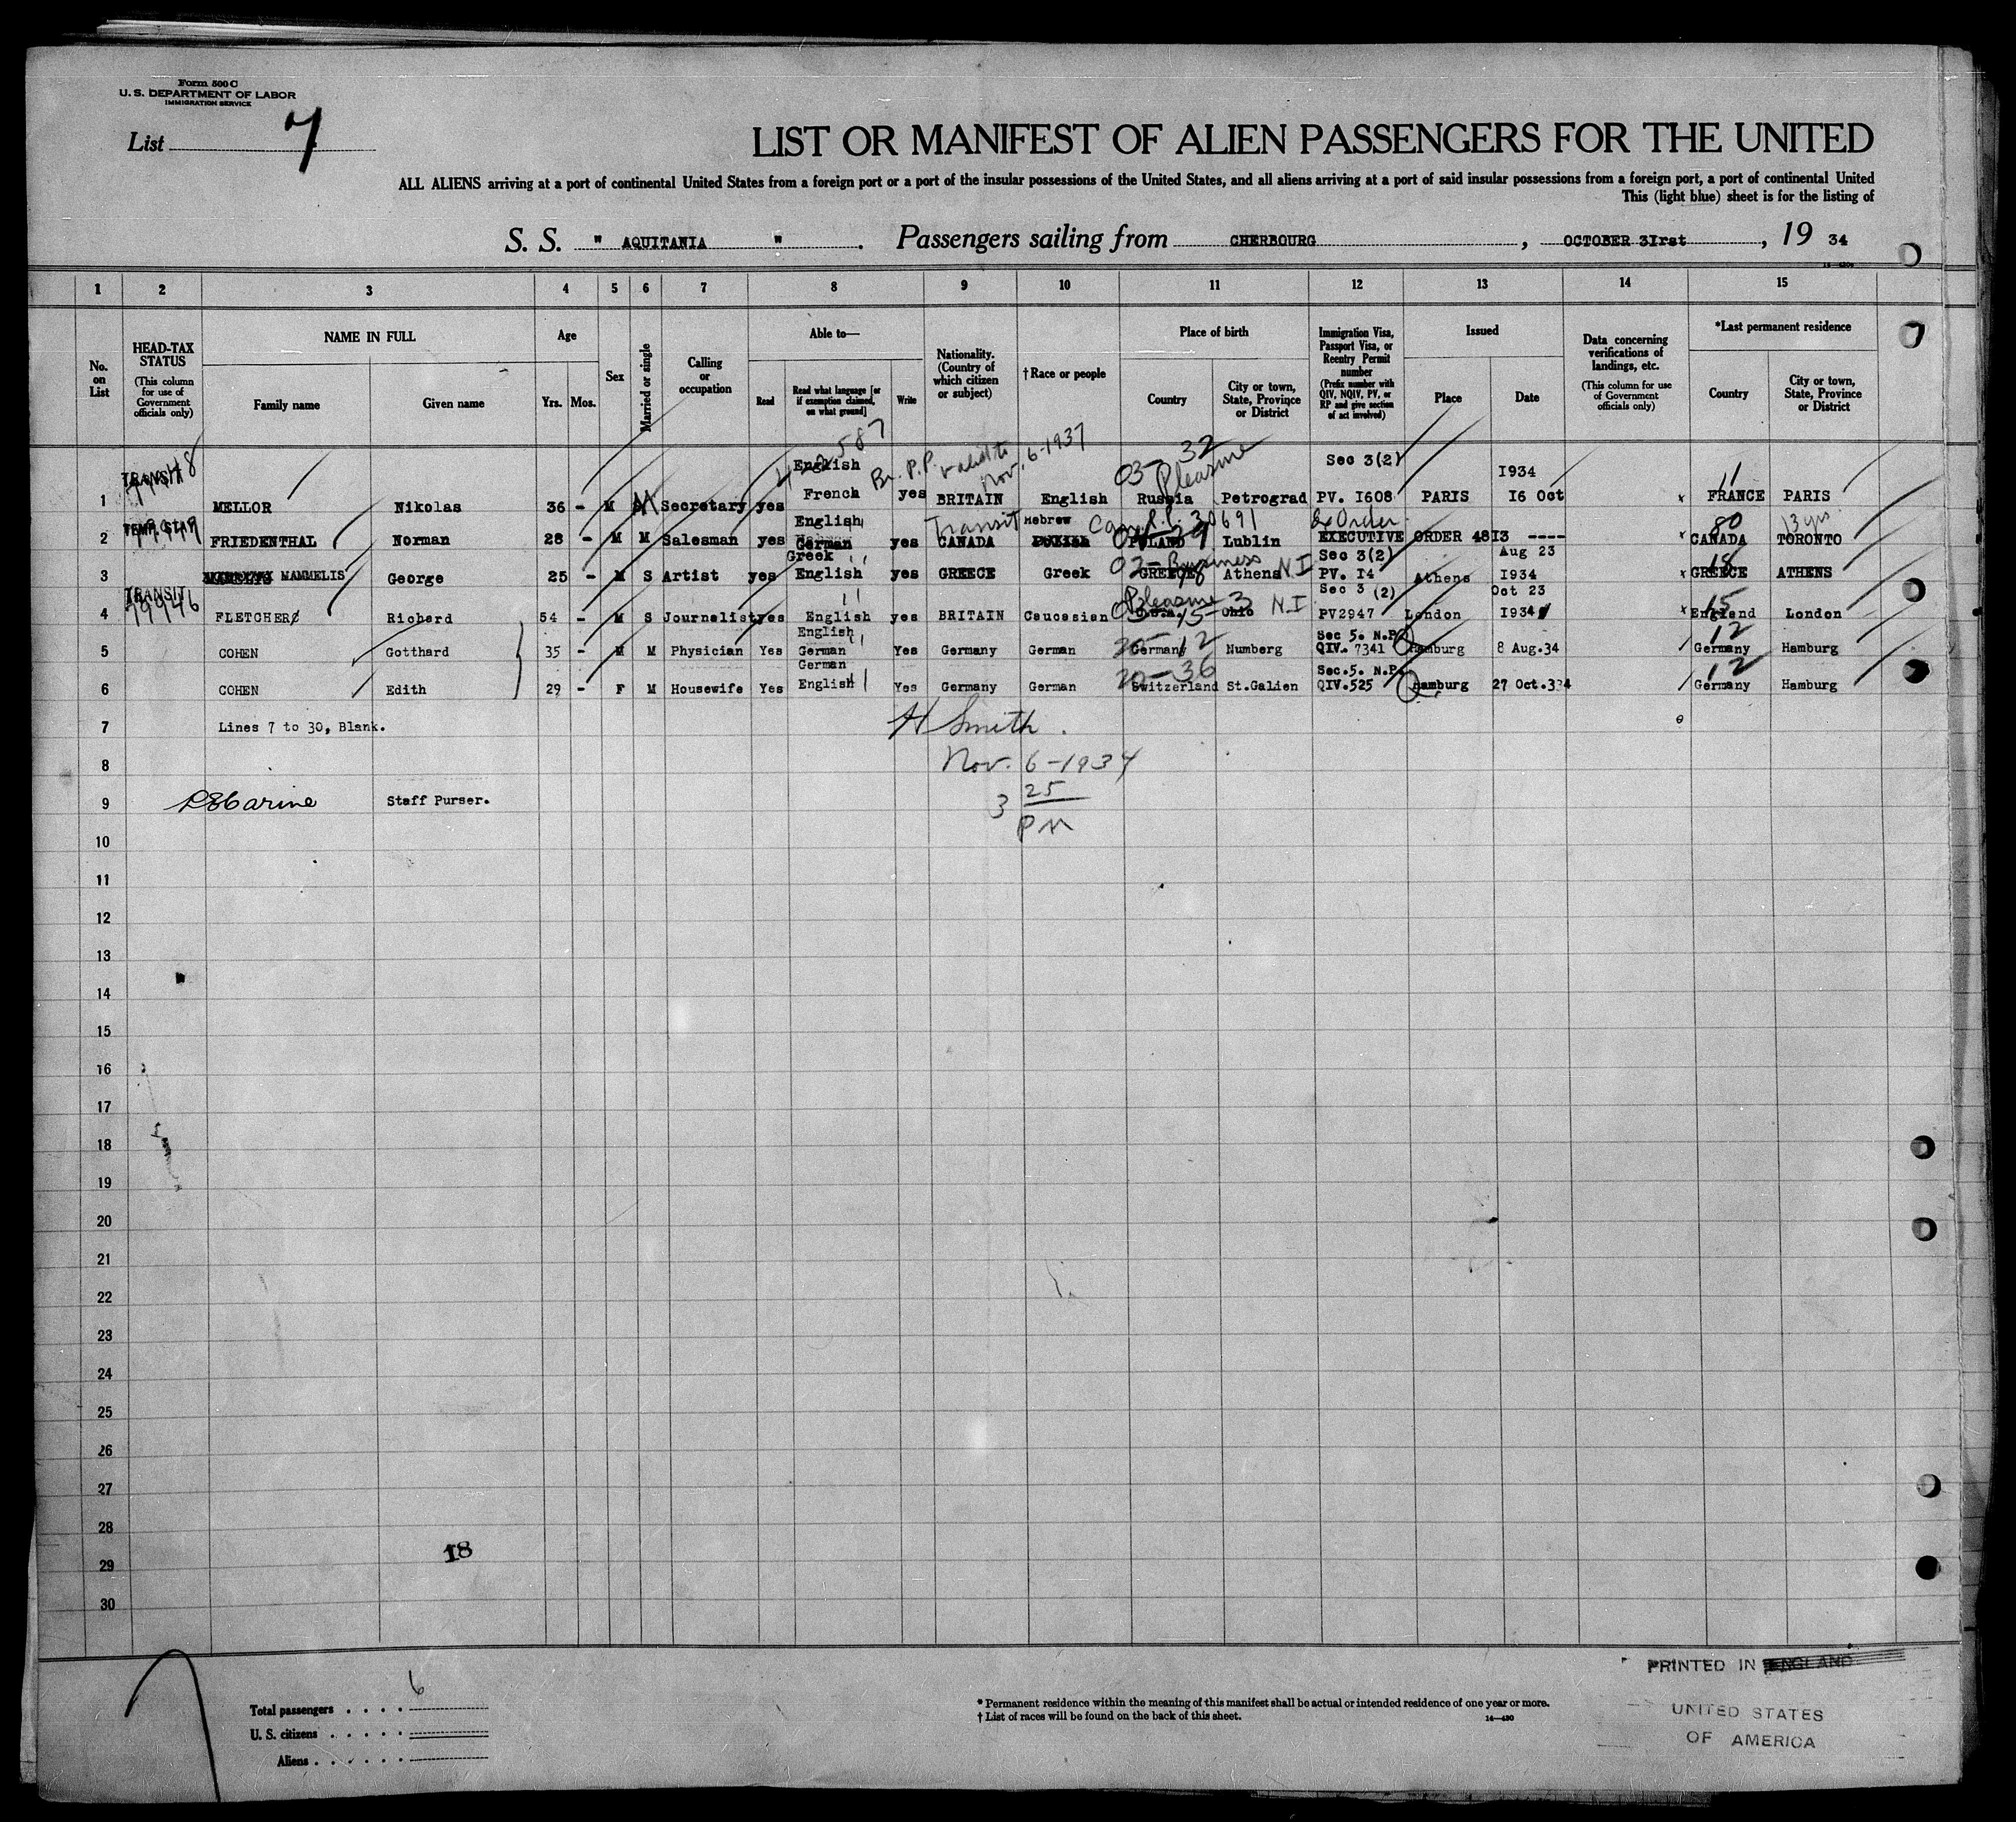 Form 500 C
U. S. DEPARTMENT OF LABOR
IMMIGRATION SERVICE
List 7
LIST OR MANIFEST OF ALIEN PASSENGERS FOR THE UNITED
ALL ALIENS arriving at a port of continental United States from a foreign port or a port of the insular possessions of the United States, and all aliens arriving at a port of said insular possessions from a foreign port, a port of continental United
This (light blue) sheet is for the listing of
S. S. " AQUITANIA " . Passengers sailing from CHERBOURG , OCTOBER 3Irst , 19 34
1 2 3 4 5 6 7 8 9 10 11 12 13 14 15
No. on List
HEAD-TAX STATUS
(This column for use of Government officials only)
NAME IN FULL
Family name
Given name
Age
Yrs. Mos.
Sex
Married or single
Calling or occupation
Able to—
Read
Read what language [or if exemption claimed, on what ground]
Write
Nationality. (Country of which citizen or subject)
†Race or people
Place of birth
Country
City or town, State, Province or District
Immigration Visa, Passport Visa, or Reentry Permit number
(Prefix number with QIV, NQIV, PV, or RP and give section of act involved)
Issued
Place
Date
Data concerning verifications of landings, etc.
(This column for use of Government officials only)
*Last permanent residence
Country
City or town, State, Province or District
422587 Br. P.P. valid to Nov. 6-1937 03-32 Pleasure
TRANSIT English Sec 3(2) I934 11
1 MELLOR Nikolas 36 - M M Secretary yes French yes BRITAIN English Russia Petrograd PV. I608 PARIS I6 Oct x FRANCE PARIS
English Transit Hebrew Can. R.P. 30691 Ex Order 80 13 yrs.
2 FRIEDENTHAL Norman 28 - M M Salesman yes German yes CANADA POLAND Lublin EXECUTIVE ORDER 48I3 ---- x CANADA TORONTO
Greek 02- Business N I Sec 3(2) Aug 23 18
3 MAMMELIS George 25 - M S Artist yes English yes GREECE Greek GREECE Athens PV. I4 Athens I934 x GREECE ATHENS
TRANSIT 79946 Pleasure N.I Sec 3 (2) Oct 23 15
4 FLETCHER Richard 54 - M S Journalist yes English yes BRITAIN Caucasian U.S.A. Ohio PV2947 London I934 x England London
English 20-12 Sec 5. N.P. 12
5 COHEN Gotthard 35 - M M Physician Yes German Yes Germany German Germany Numberg QIV. 7341 Hamburg 8 Aug.34 Germany Hamburg
German 20-36 Sec.5. N.P. 12
6 COHEN Edith 29 - F M Housewife Yes English Yes Germany German Switzerland St.Galien QIV.525 Hamburg 27 Oct.334 Germany Hamburg
7 Lines 7 to 30, Blank. H Smith.
8 Nov. 6-1934
9 Staff Purser. 3 25
PM
10
11
12
13
14
15
16
17
18
19
20
21
22
23
24
25
26
27
28
29 18
30
Total passengers . . . . 6
U. S. citizens . . . . .
Aliens . . . . . .
* Permanent residence within the meaning of this manifest shall be actual or intended residence of one year or more.
† List of races will be found on the back of this sheet.
14—430
PRINTED IN ENGLAND
UNITED STATES
OF AMERICA